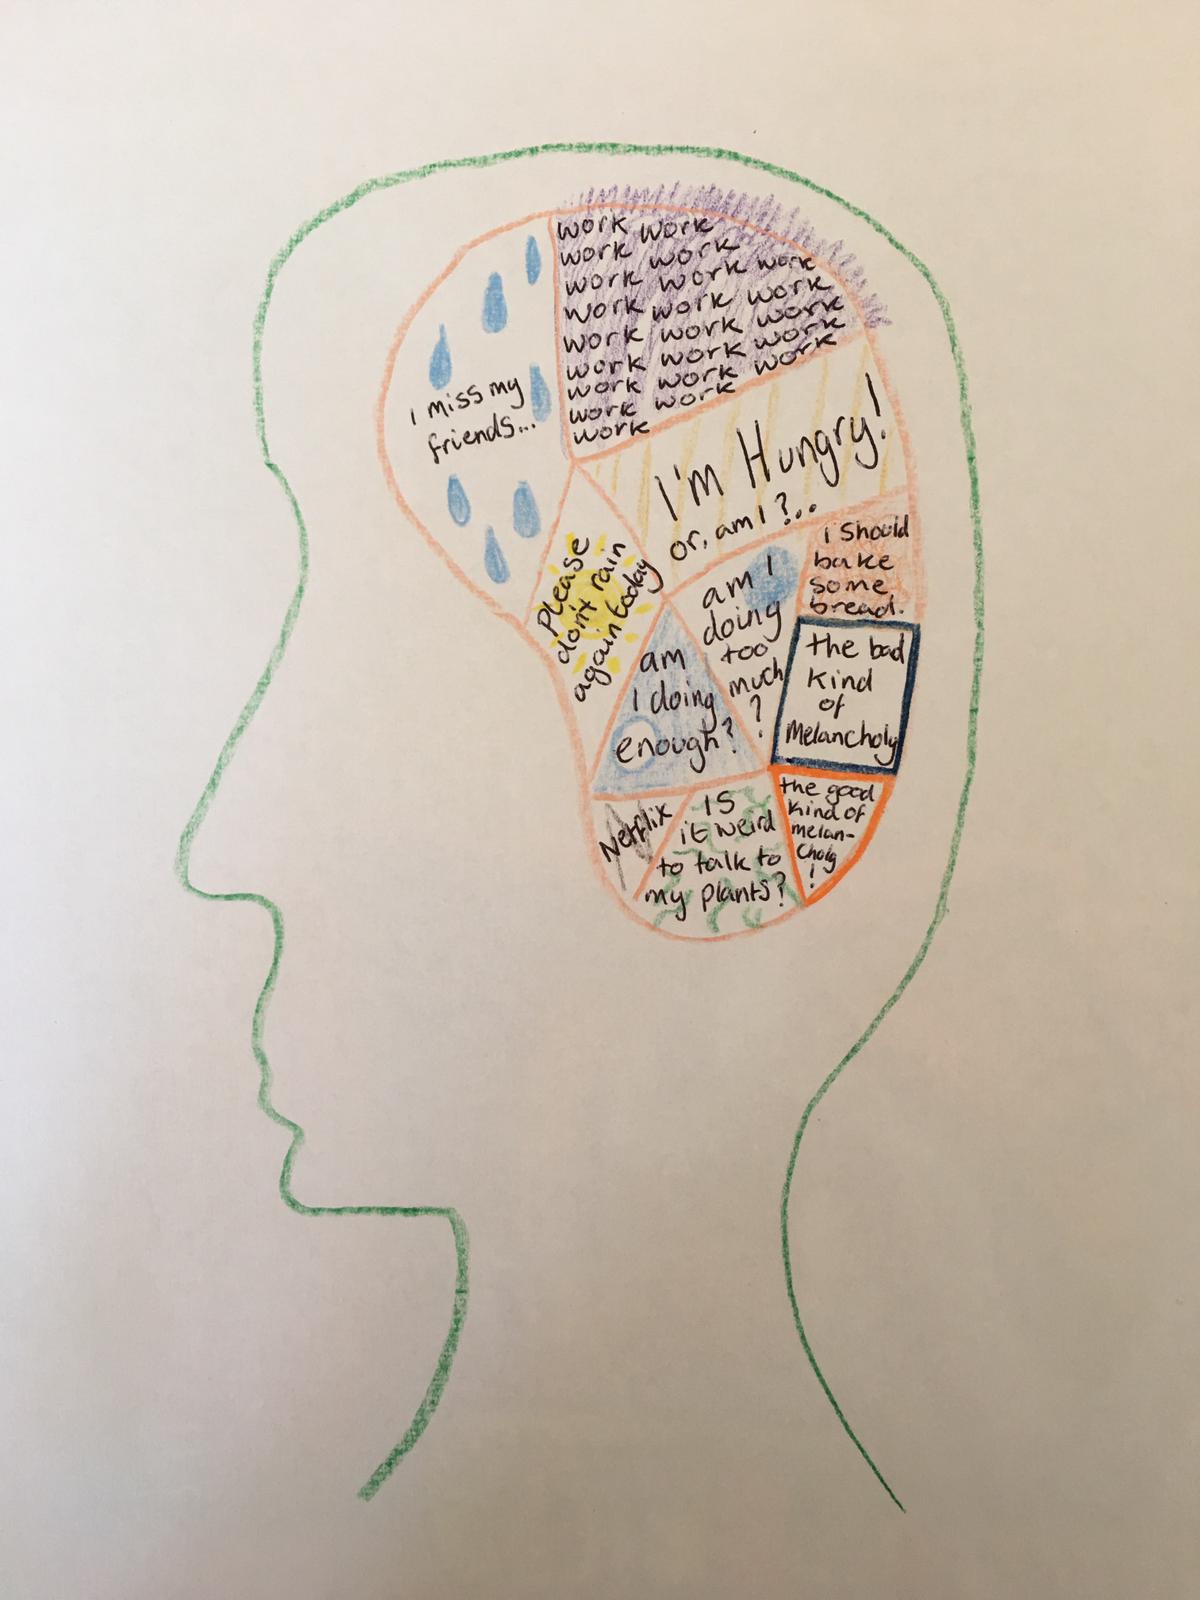 work work
work work
work work work
work work work
work work work
work work work
work work work
work work
work
I miss my
friends...
I'm Hungry!
or, am I?..
Please
don't rain
again today
am I
doing
too
much
?
i should
bake
some
bread.
am
I doing
enough?
the bad
kind
of
Melancholy
Netflix
IS
it weird
to talk to
my plants?
the good
kind of
melan-
choly
!